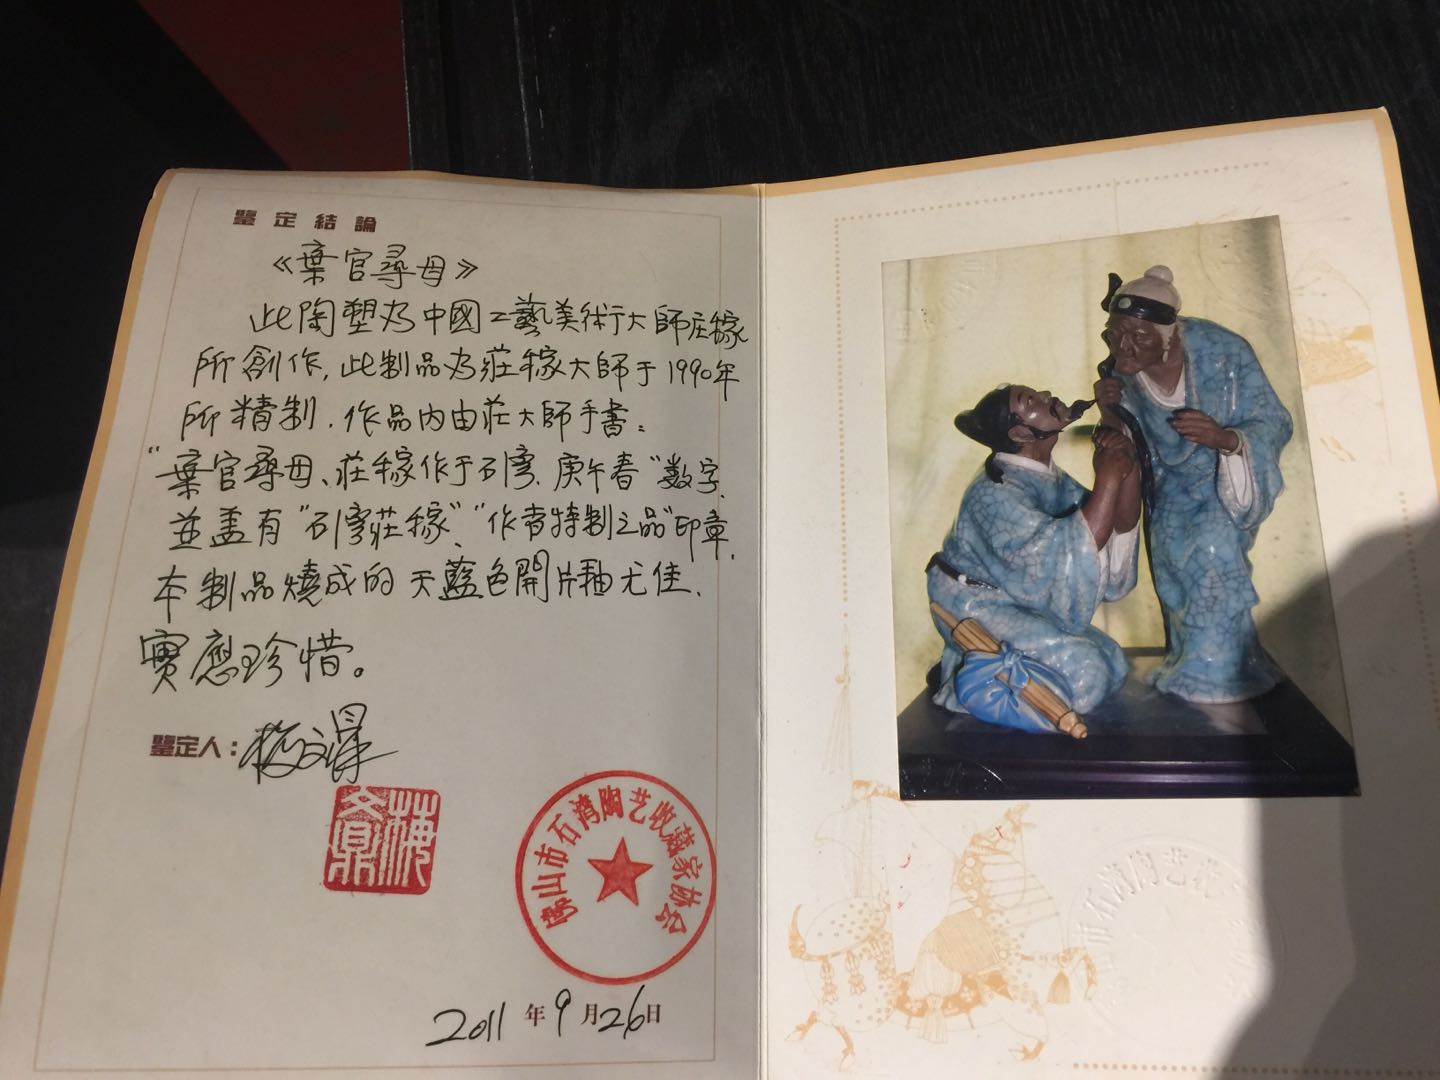 鑒定結論
《棄官尋母》
此陶塑为中國工藝美術大師庄稼
所創作,此制品为莊稼大師于1990年
所精制.作品内由莊大師手書:
"棄官尋母、莊稼作于石湾.庚午春"数字.
並盖有"石湾莊稼"、"作者特制之品"印章.
本制品燒成的天藍色開片釉尤佳.
實應珍惜。
鑒定人:梅文鼎
梅文鼎
佛山市石湾陶艺收藏家协会
2011年9月26日
市石湾陶艺